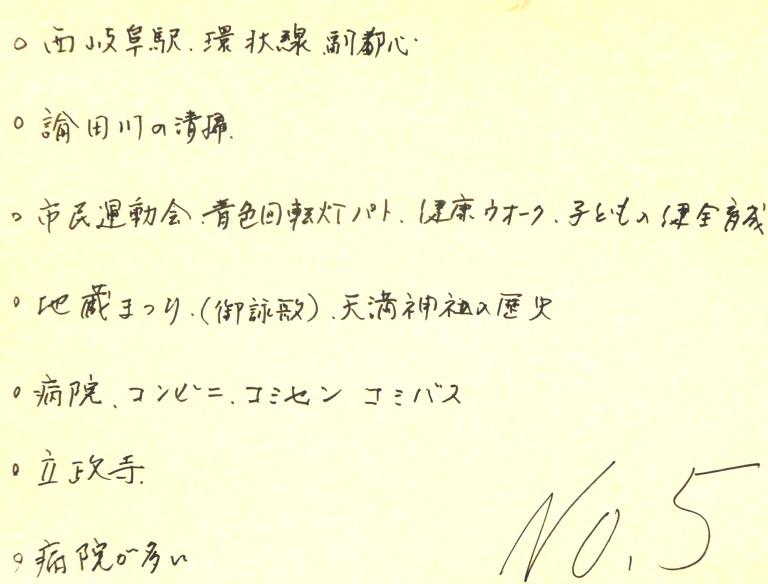 ○ 西岐阜駅、環状線、副都心
○ 論田川の清掃、
○ 市民運動会、青色回転灯パト、健康ウオーク、子どもの健全育成
○ 地蔵まつり、(御詠歌)、天満神社の歴史
○ 病院、コンビニ、コミセン コミバス
○ 立政寺、
○ 病院が多い
No.5